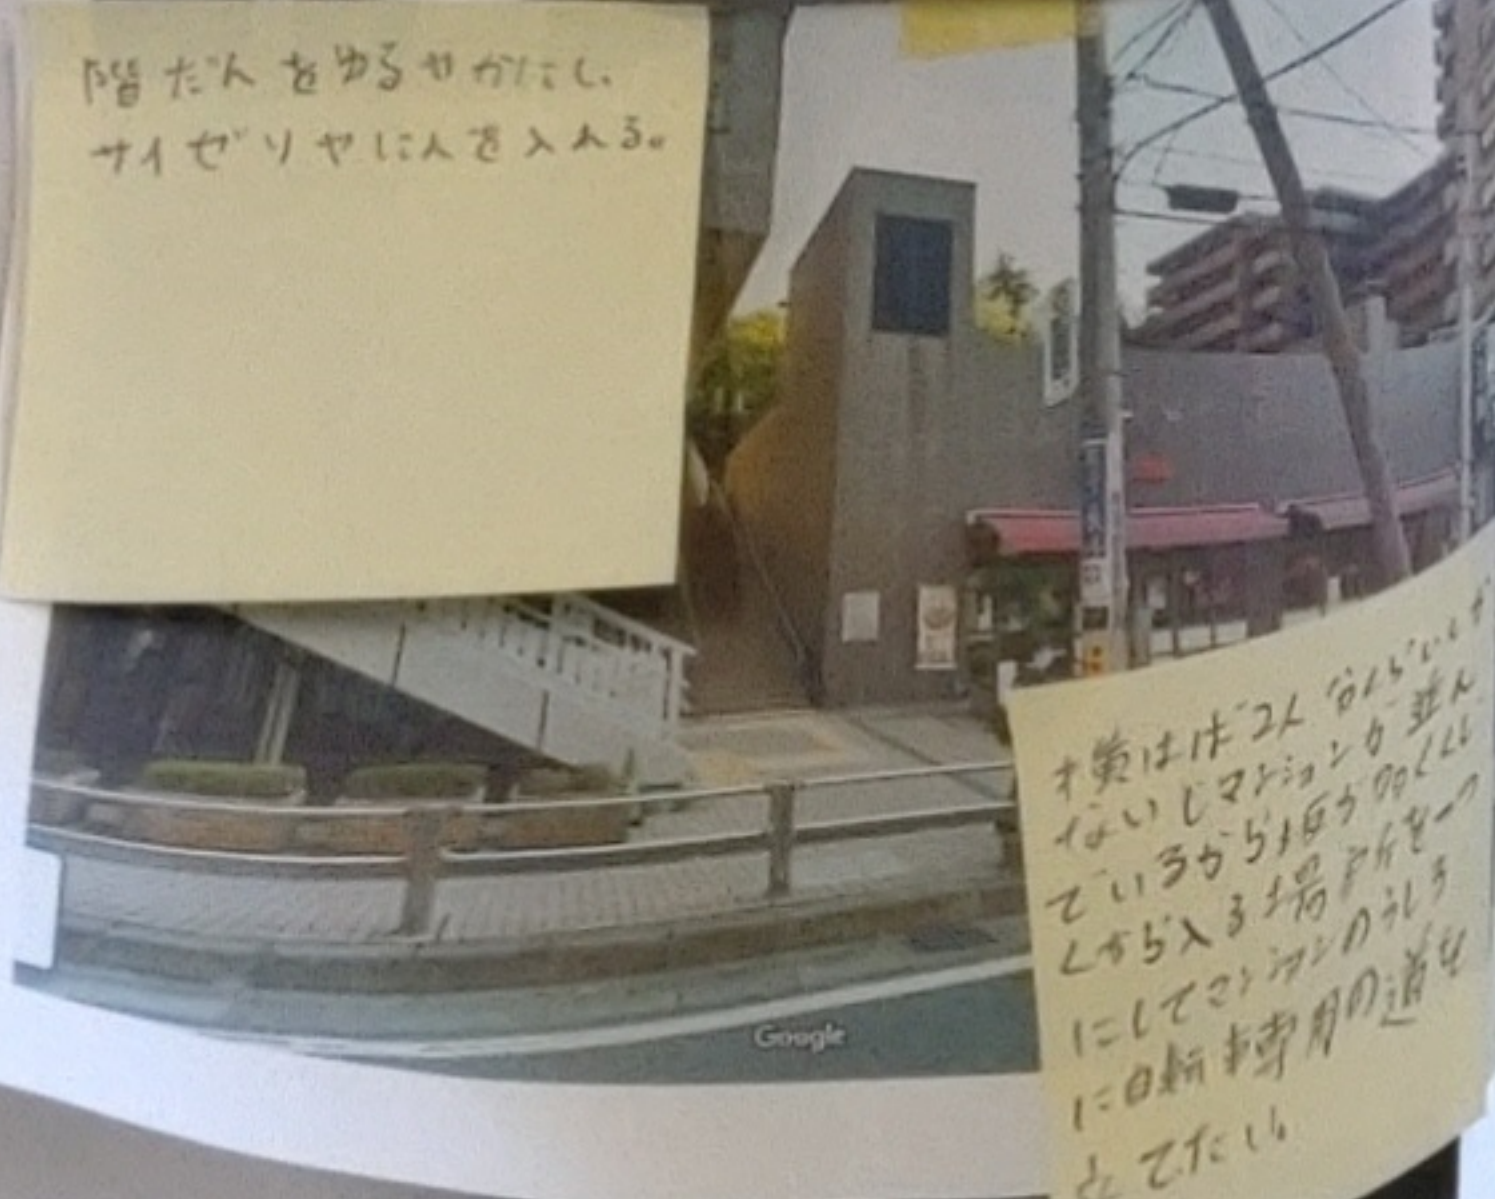 階だんをゆるやかにし、
サイゼリヤに人を入れる。
横はば2人分くらいしか
ないしマンションが並ん
でいるから
から入る場所を一つ
にしてマンションのうしろ
に自転車専用の道を
立てたい。
Google